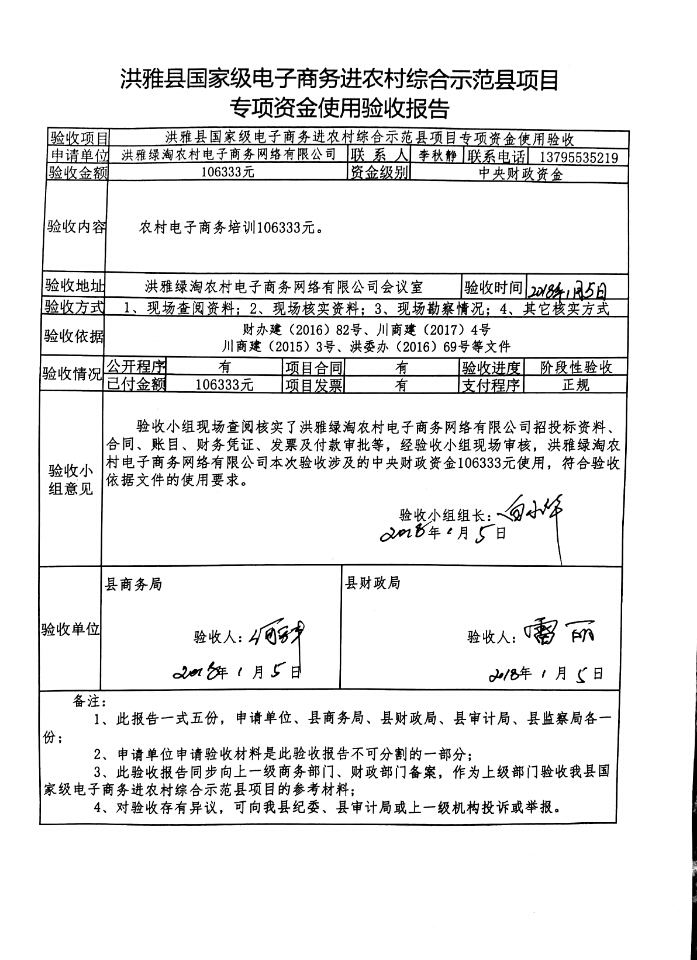 洪雅县国家级电子商务进农村综合示范县项目
专项资金使用验收报告
验收项目 洪雅县国家级电子商务进农村综合示范县项目专项资金使用验收
申请单位 洪雅绿淘农村电子商务网络有限公司 联系人 李秋静 联系电话 13795535219
验收金额 106333元 资金级别 中央财政资金
验收内容 农村电子商务培训106333元。
验收地址 洪雅绿淘农村电子商务网络有限公司会议室 验收时间 2018年1月5日
验收方式 1、现场查阅资料；2、现场核实资料；3、现场勘察情况；4、其它核实方式
验收依据 财办建（2016）82号、川商建（2017）4号
川商建（2015）3号、洪委办（2016）69号等文件
验收情况 公开程序 有 项目合同 有 验收进度 阶段性验收
已付金额 106333元 项目发票 有 支付程序 正规
验收小
组意见
验收小组现场查阅核实了洪雅绿淘农村电子商务网络有限公司招投标资料、
合同、账目、财务凭证、发票及付款审批等，经验收小组现场审核，洪雅绿淘农
村电子商务网络有限公司本次验收涉及的中央财政资金106333元使用，符合验收
依据文件的使用要求。
验收小组组长：
2018年1月5日
验收单位
县商务局
验收人：
2018年1月5日
县财政局
验收人：雷丽
2018年1月5日
备注：
1、此报告一式五份，申请单位、县商务局、县财政局、县审计局、县监察局各一
份；
2、申请单位申请验收材料是此验收报告不可分割的一部分；
3、此验收报告同步向上一级商务部门、财政部门备案，作为上级部门验收我县国
家级电子商务进农村综合示范县项目的参考材料；
4、对验收存有异议，可向我县纪委、县审计局或上一级机构投诉或举报。